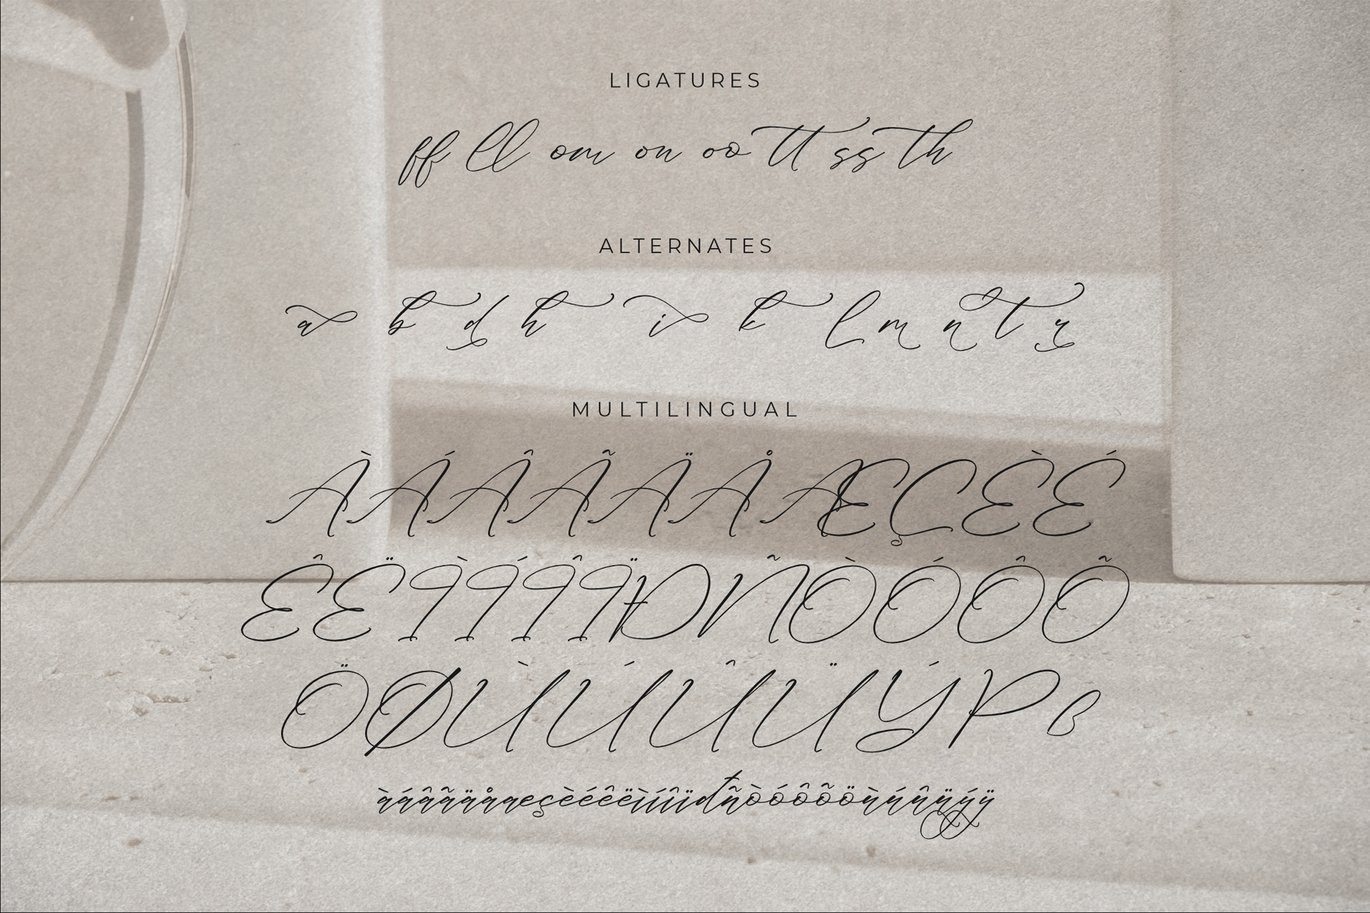 LIGATURES
ff ll om on oo tt ss th
ALTERNATES
a b d h i k l m n t r
MULTILINGUAL
ÀÁÂÃÄÅÆÇÈÉ
ÊËÌÍÎÏÐÑÒÓÔÕ
ÖØÙÚÛÜÝÞß
àáâãäåæçèéêëìíîïđñòóôõöùúûüýÿ